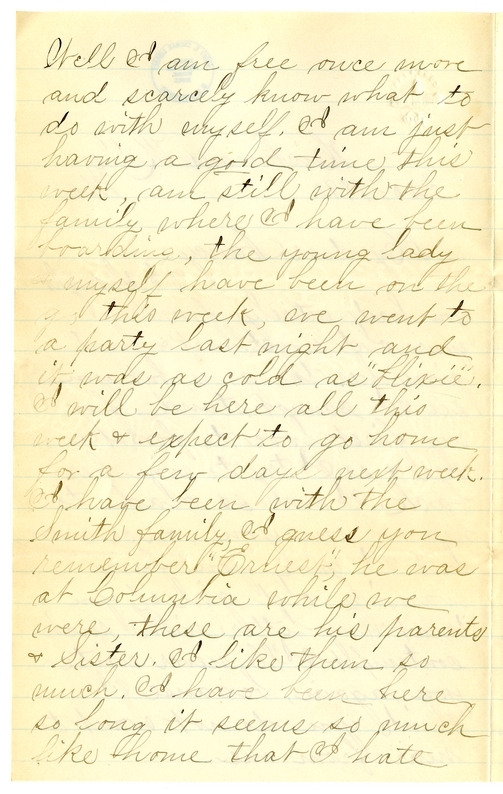 Well I am free once more
and scarcely know what to
do with myself. I am just
having a good time this
week, am still with the
family where I have been
boarding, the young lady
& myself have been on the
go this week, we went to
a party last night and
it was as cold as "blixie".
I will be here all this
week & expect to go home
for a few days next week.
I have been with the
Smith family, I guess you
remember "Ernest", he was
at Columbia while we
were, these are his parents
& Sister. I like them so
much. I have been here
so long it seems so much
like home that I hate